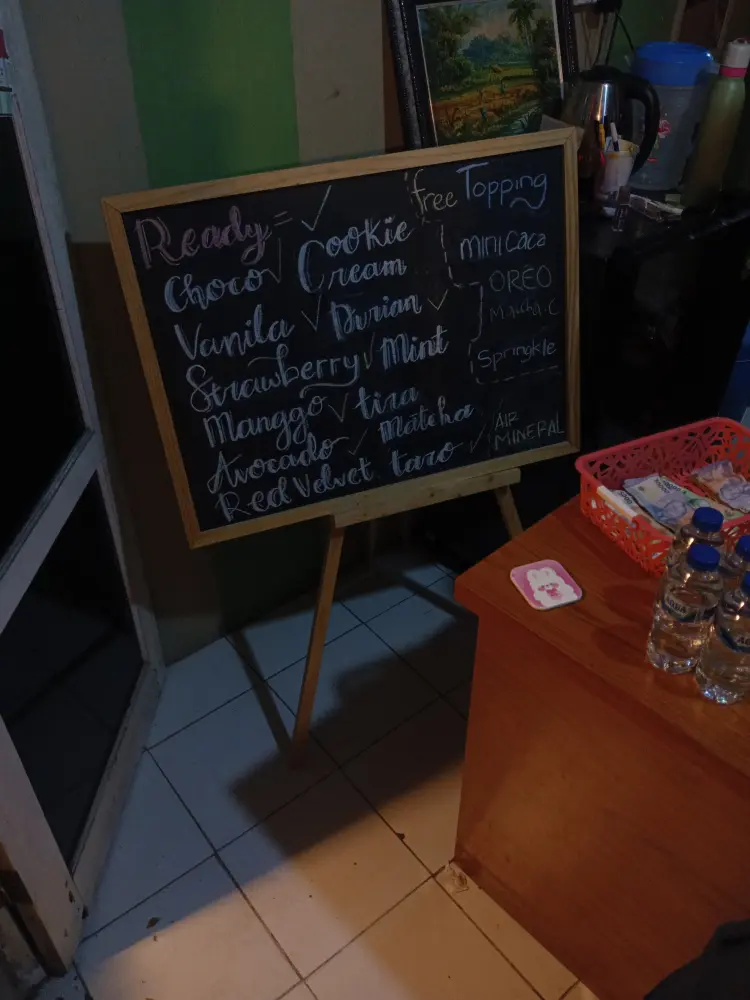 Ready = ✓
Choco ✓ Cookie Cream
Vanila ✓ Durian ✓
Strawberry ✓ Mint
Manggo ✓ tira
Avocado ✓ Matcha
Red Velvet taro ✓
free Topping
mini Caca
OREO
Matcha-C
Springkle
AIR
MINERAL